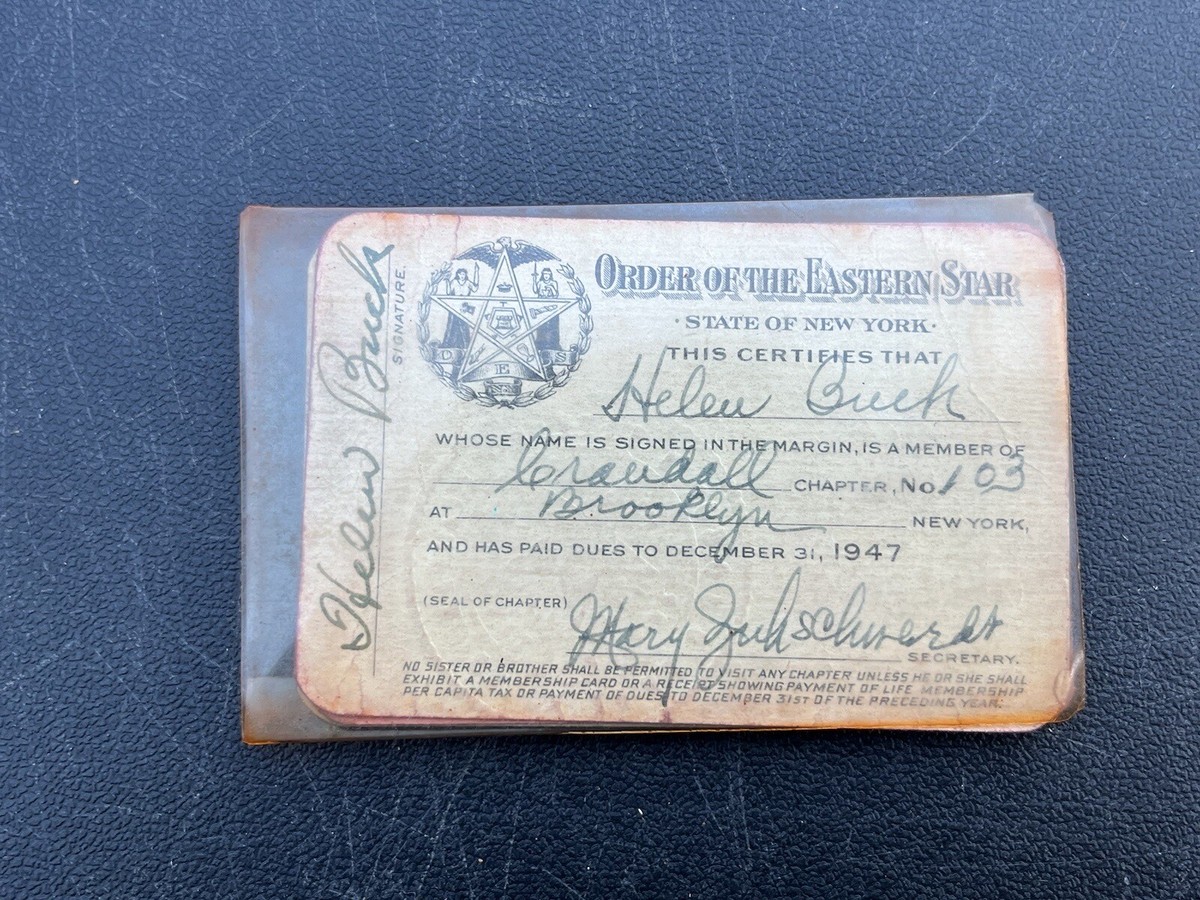 Helen Buck
SIGNATURE.
O E S
ORDER OF THE EASTERN STAR
·STATE OF NEW YORK·
THIS CERTIFIES THAT
Helen Buck
WHOSE NAME IS SIGNED IN THE MARGIN, IS A MEMBER OF
Crandall CHAPTER, No. 103
AT Brooklyn NEW YORK,
AND HAS PAID DUES TO DECEMBER 31, 1947
(SEAL OF CHAPTER)
Mary
SECRETARY.
NO SISTER OR BROTHER SHALL BE PERMITTED TO VISIT ANY CHAPTER UNLESS HE OR SHE SHALL
EXHIBIT A MEMBERSHIP CARD OR A RECEIPT SHOWING PAYMENT OF LIFE MEMBERSHIP
PER CAPITA TAX OR PAYMENT OF DUES TO DECEMBER 31ST OF THE PRECEDING YEAR.